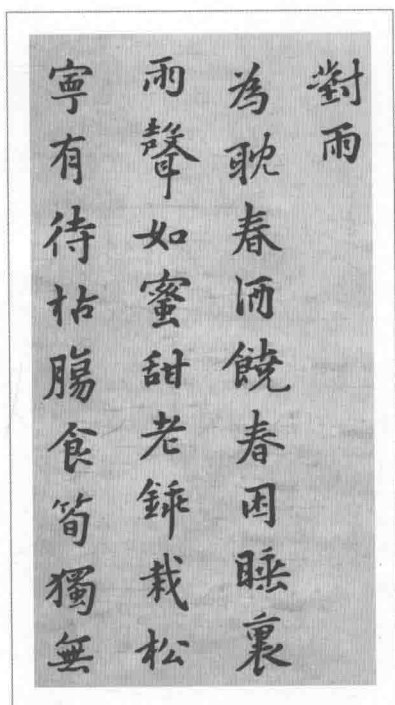 對雨
為耽春酒饒春困睡裏
雨聲如蜜甜老鍤栽松
寧有待枯腸食筍獨無